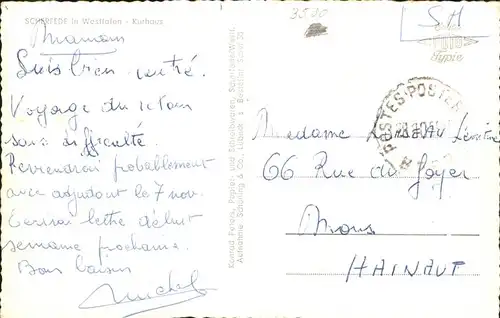 SCHERFEDE in Westfalen - Kurhaus
Maman
Suis bien rentré.
Voyage du retour
sans difficulté.
Reviendrai probablement
avec adjudant le 7 nov.
Ecrirai lettre début
semaine prochaine.
Bons baisers
Michel
Konrad Peters, Papier- und Schreibwaren, Scherfede/Westf.
Aufnahme Schöning & Co., Lübeck
3580
SM
FOTO
Typie
POSTES-POSTERIJEN
Madame
66 Rue du Foyer
Mons
HAINAUT